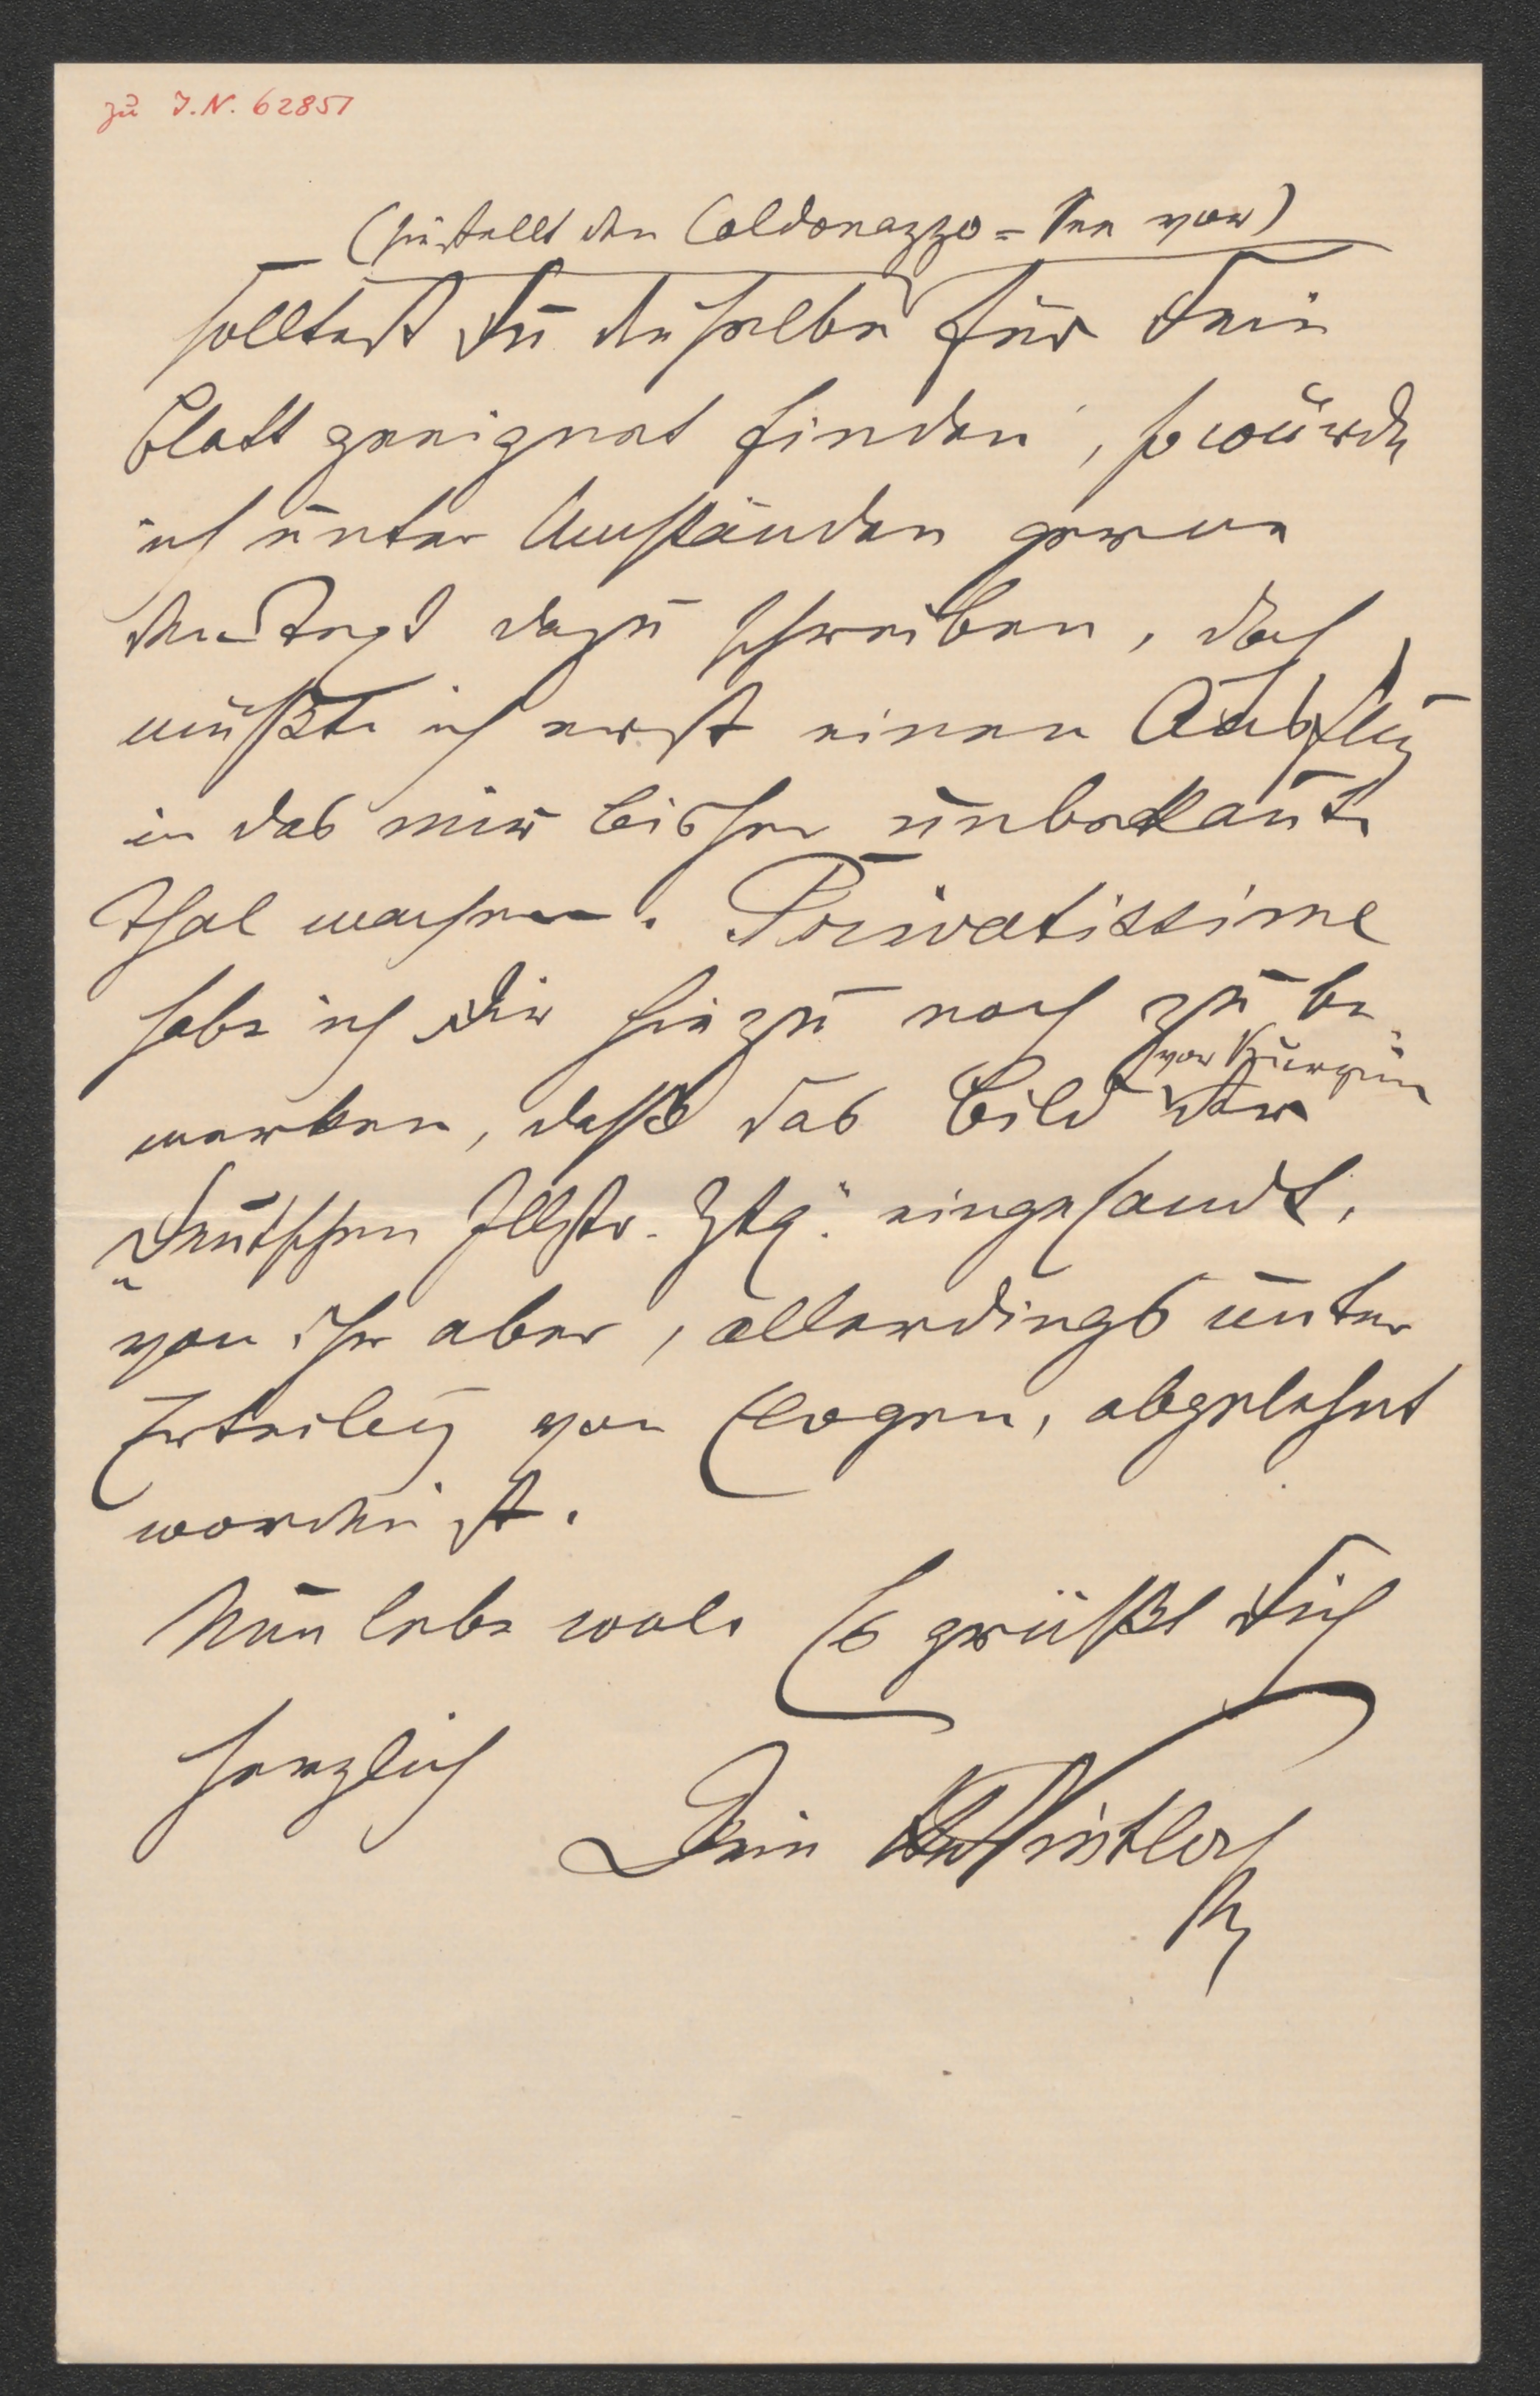 zu I.N. 62851
(sie stellt den Caldonazzo-See vor)
Solltest Du dieselbe für Dein
Blatt geeignet finden, so würde
ich unter Umständen gerne
den Text dazu schreiben, doch
müßte ich erst einen Ausflug
in das mir bisher unbekannte
Thal machen. Privatissime
habe ich Dir hiezu noch zu be-
vor Kurzem
merken, daß das Bild der
„Deutschen Illstr. Ztg." eingesandt,
von ihr aber, allerdings unter
Erteilung von Elogen, abgelehnt
worden ist.
Nun lebe wol. Es grüßt Dich
herzlich
Dein